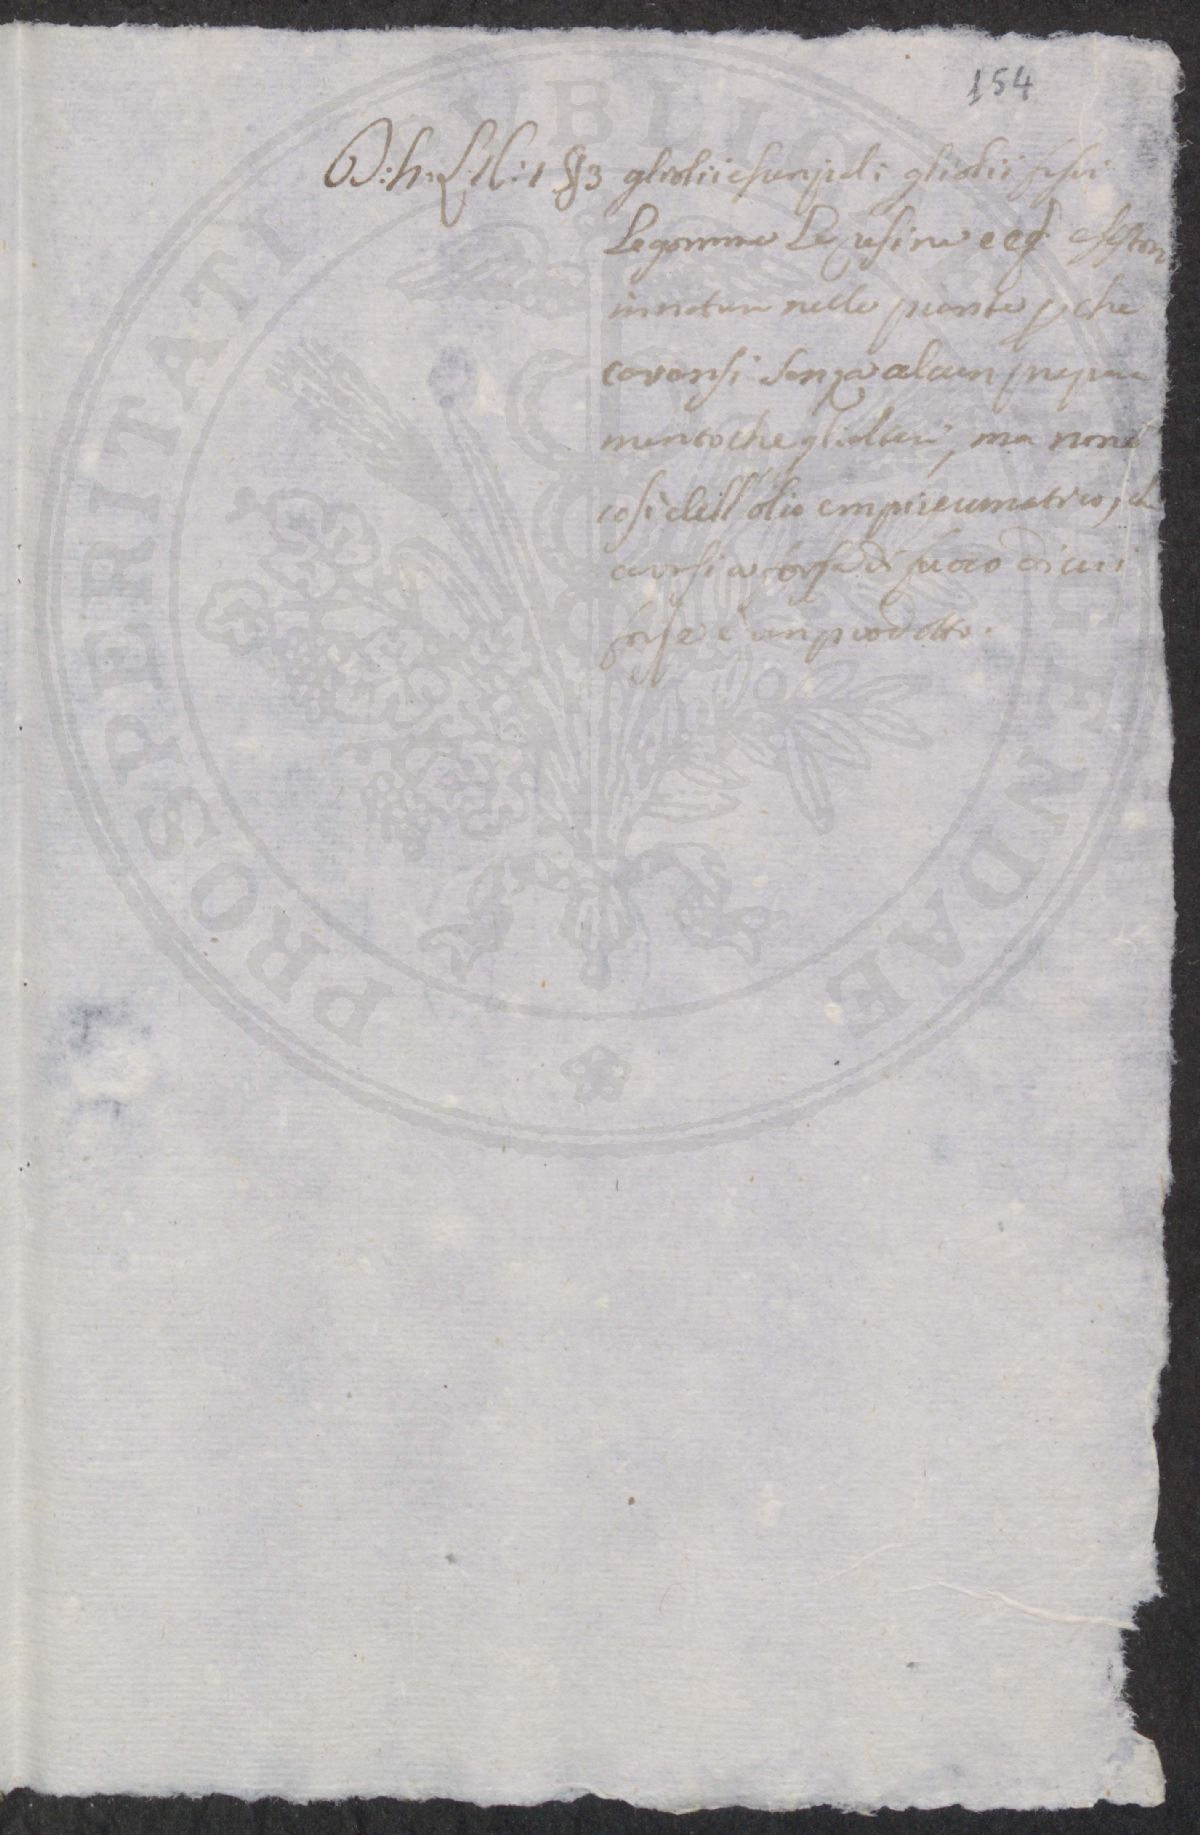 154
:1 § 3 gli olii gli olii fissi
Le gomme Le resine ecc.
in natura nelle piante pche
cavansi senza alcun prepara
mento che gli altera, ma non è
così dell'olio empireumatico, ch
a forza di fuoco di cui
forse è un prodotto.
PROSPERITATI PUBLICAE AUGENDAE